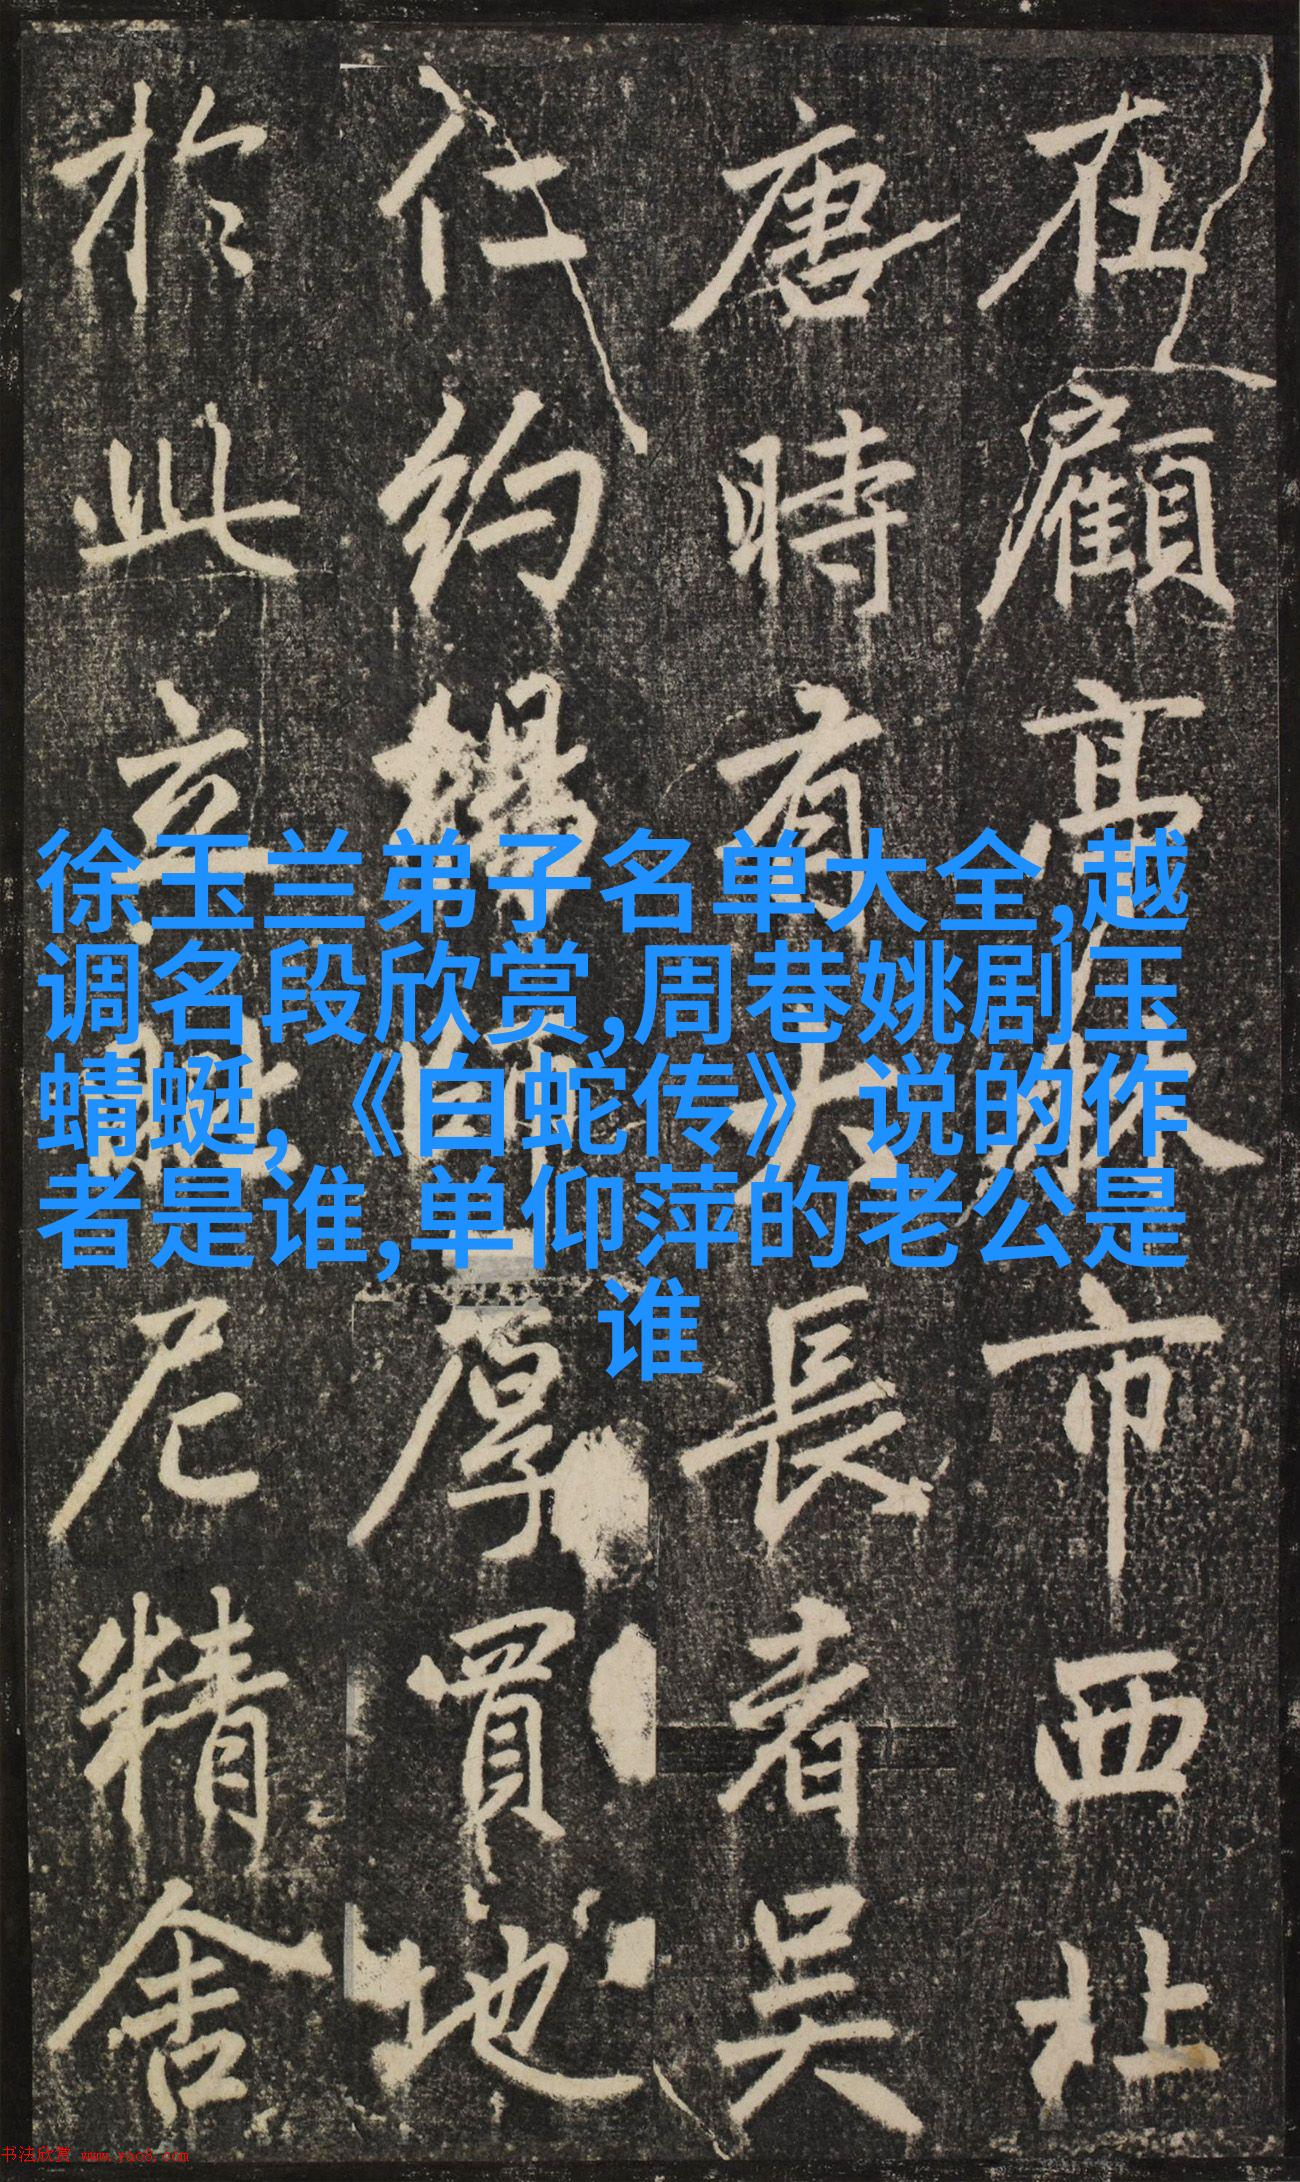 在顧亭林市西北
唐時有大長者吳
仁約厚買地
於此立毗尼精舍
徐玉兰弟子名单大全,越
调名段欣赏,周巷姚剧玉
蜻蜓,《白蛇传》说的作
者是谁,单仰萍的老公是
谁
书法欣赏 www.yac8.com